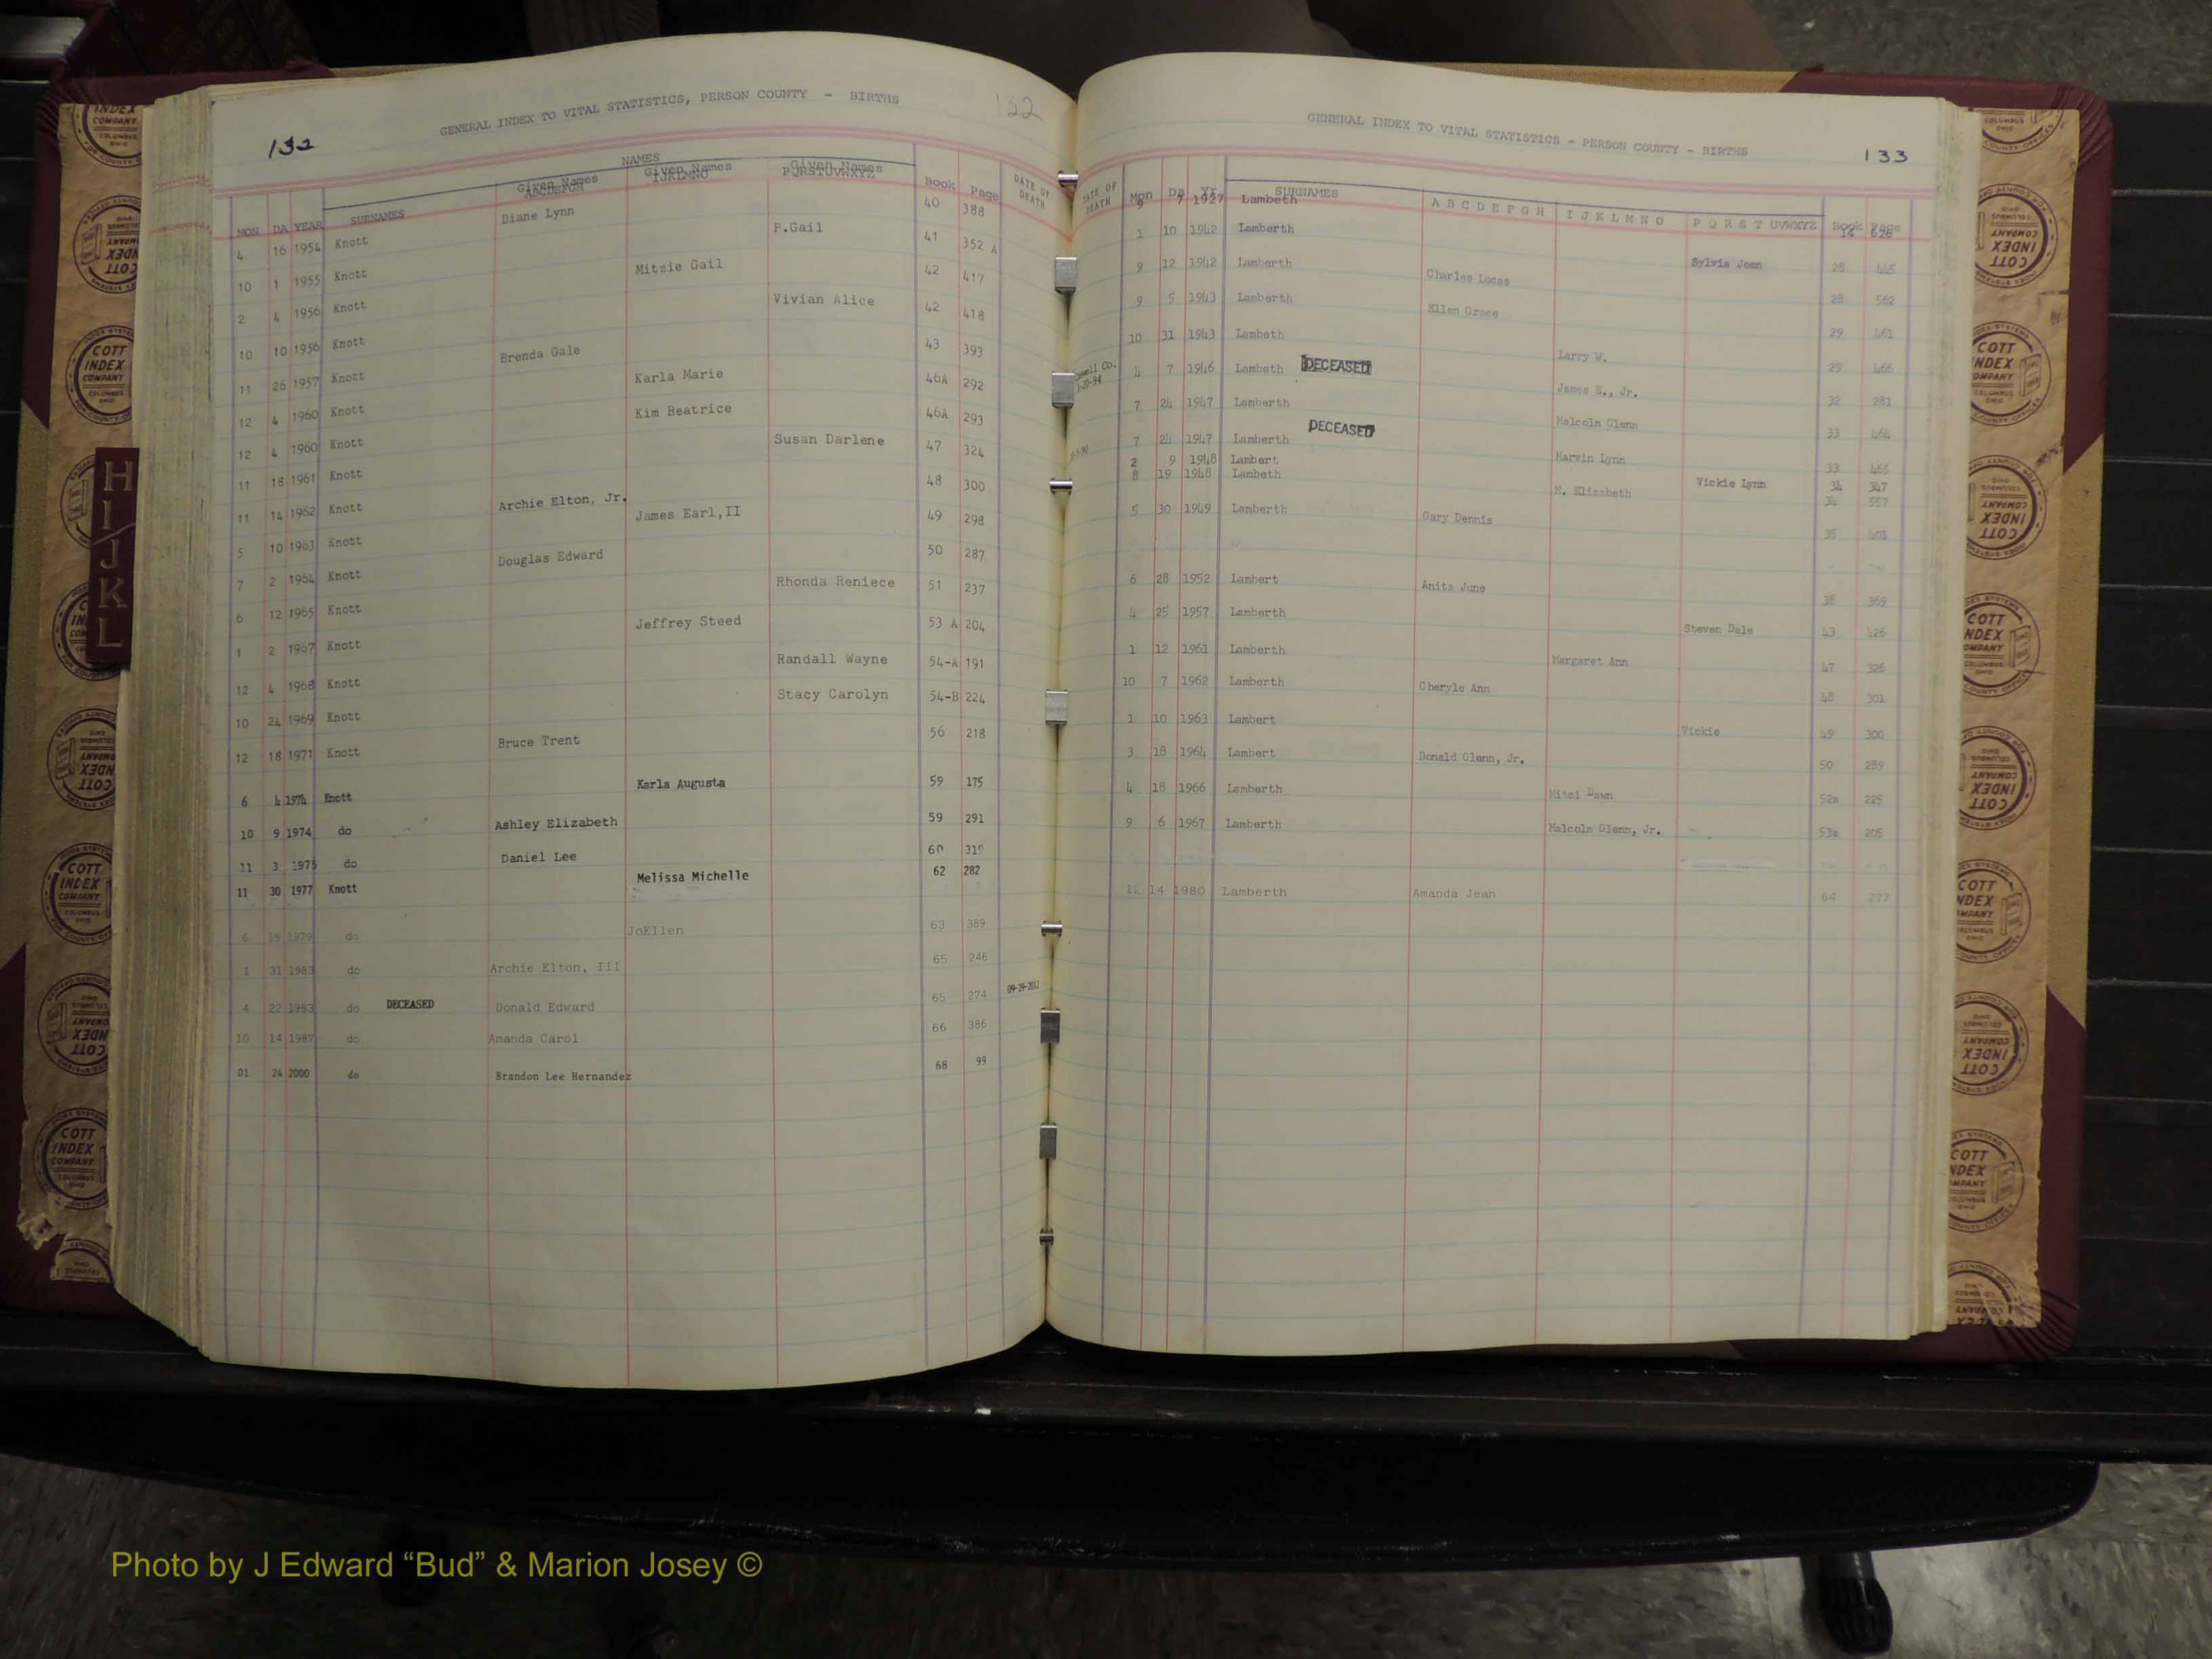 132
GENERAL INDEX TO VITAL STATISTICS, PERSON COUNTY - BIRTHS
132
NAMES
MON DA YEAR SURNAMES Given Names ABCDEFGH Given Names IJKLMNO Given Names PQRSTUVWXYZ Book Page DATE OF DEATH
4 16 1954 Knott Diane Lynn 40 388
10 1 1955 Knott P.Gail 41 352 A
2 4 1956 Knott Mitzie Gail 42 417
10 10 1956 Knott Vivian Alice 42 418
11 26 1957 Knott Brenda Gale 43 393
12 4 1960 Knott Karla Marie 46A 292
12 4 1960 Knott Kim Beatrice 46A 293
11 18 1961 Knott Susan Darlene 47 324
11 14 1962 Knott Archie Elton, Jr. 48 300
5 10 1963 Knott James Earl,II 49 298
7 2 1964 Knott Douglas Edward 50 287
6 12 1965 Knott Rhonda Reniece 51 237
1 2 1967 Knott Jeffrey Steed 53 A 204
12 4 1968 Knott Randall Wayne 54-A 191
10 24 1969 Knott Stacy Carolyn 54-B 224
12 18 1971 Knott Bruce Trent 56 218
6 4 1974 Knott Karla Augusta 59 175
10 9 1974 do Ashley Elizabeth 59 291
11 3 1975 do Daniel Lee 60 310
11 30 1977 Knott Melissa Michelle 62 282
6 19 1979 do JoEllen 63 389
1 31 1983 do Archie Elton, III 65 246
4 22 1983 do DECEASED Donald Edward 65 274 09-29-2012
10 14 1987 do Amanda Carol 66 386
01 24 2000 do Brandon Lee Hernandez 68 99
GENERAL INDEX TO VITAL STATISTICS - PERSON COUNTY - BIRTHS
133
DATE OF DEATH Mon Da Yr SURNAMES A B C D E F G H I J K L M N O P Q R S T UVWXYZ Book Page
9 7 1927 Lambeth 14 628
1 10 1942 Lamberth Sylvia Joan 28 445
9 12 1942 Lamberth Charles Lucas 28 562
9 5 1943 Lamberth Ellen Grace 29 461
10 31 1943 Lambeth Larry W. 29 466
4 7 1946 Lambeth DECEASED James E., Jr. 32 281
7 24 1947 Lamberth Malcolm Glenn 33 464
7 24 1947 Lamberth DECEASED Marvin Lynn 33 465
2 9 1948 Lambert Vickie Lynn 34 347
8 19 1948 Lambeth M. Elizabeth 34 557
5 30 1949 Lamberth Gary Dennis 35 401
6 28 1952 Lambert Anita June 38 369
4 25 1957 Lamberth Steven Dale 43 426
1 12 1961 Lamberth Margaret Ann 47 326
10 7 1962 Lamberth Cheryle Ann 48 301
1 10 1963 Lambert Vickie 49 300
3 18 1964 Lambert Donald Glenn, Jr. 50 289
4 18 1966 Lamberth Mitzi Dawn 52a 225
9 6 1967 Lamberth Malcolm Glenn, Jr. 53a 205
12 14 1980 Lamberth Amanda Jean 64 277
H I J K L
COTT INDEX COMPANY COLUMBUS OHIO
Photo by J Edward “Bud” & Marion Josey ©